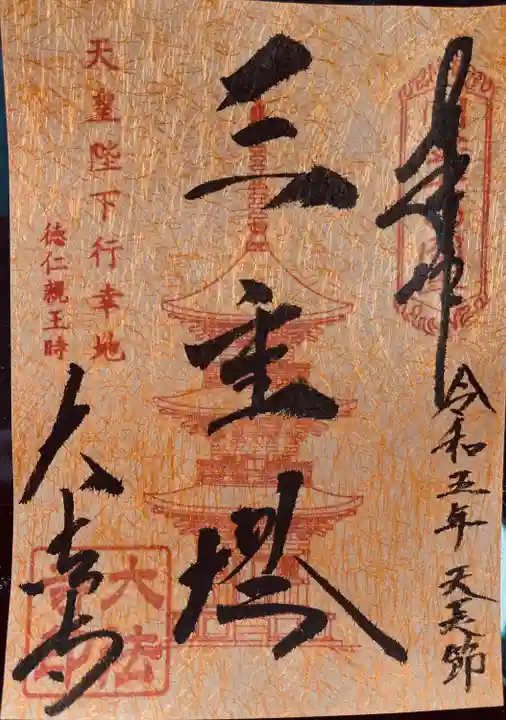 奉拝
令和五年 天長節
三重塔
天皇陛下行幸地
徳仁親王時
大法寺
大法
寺印